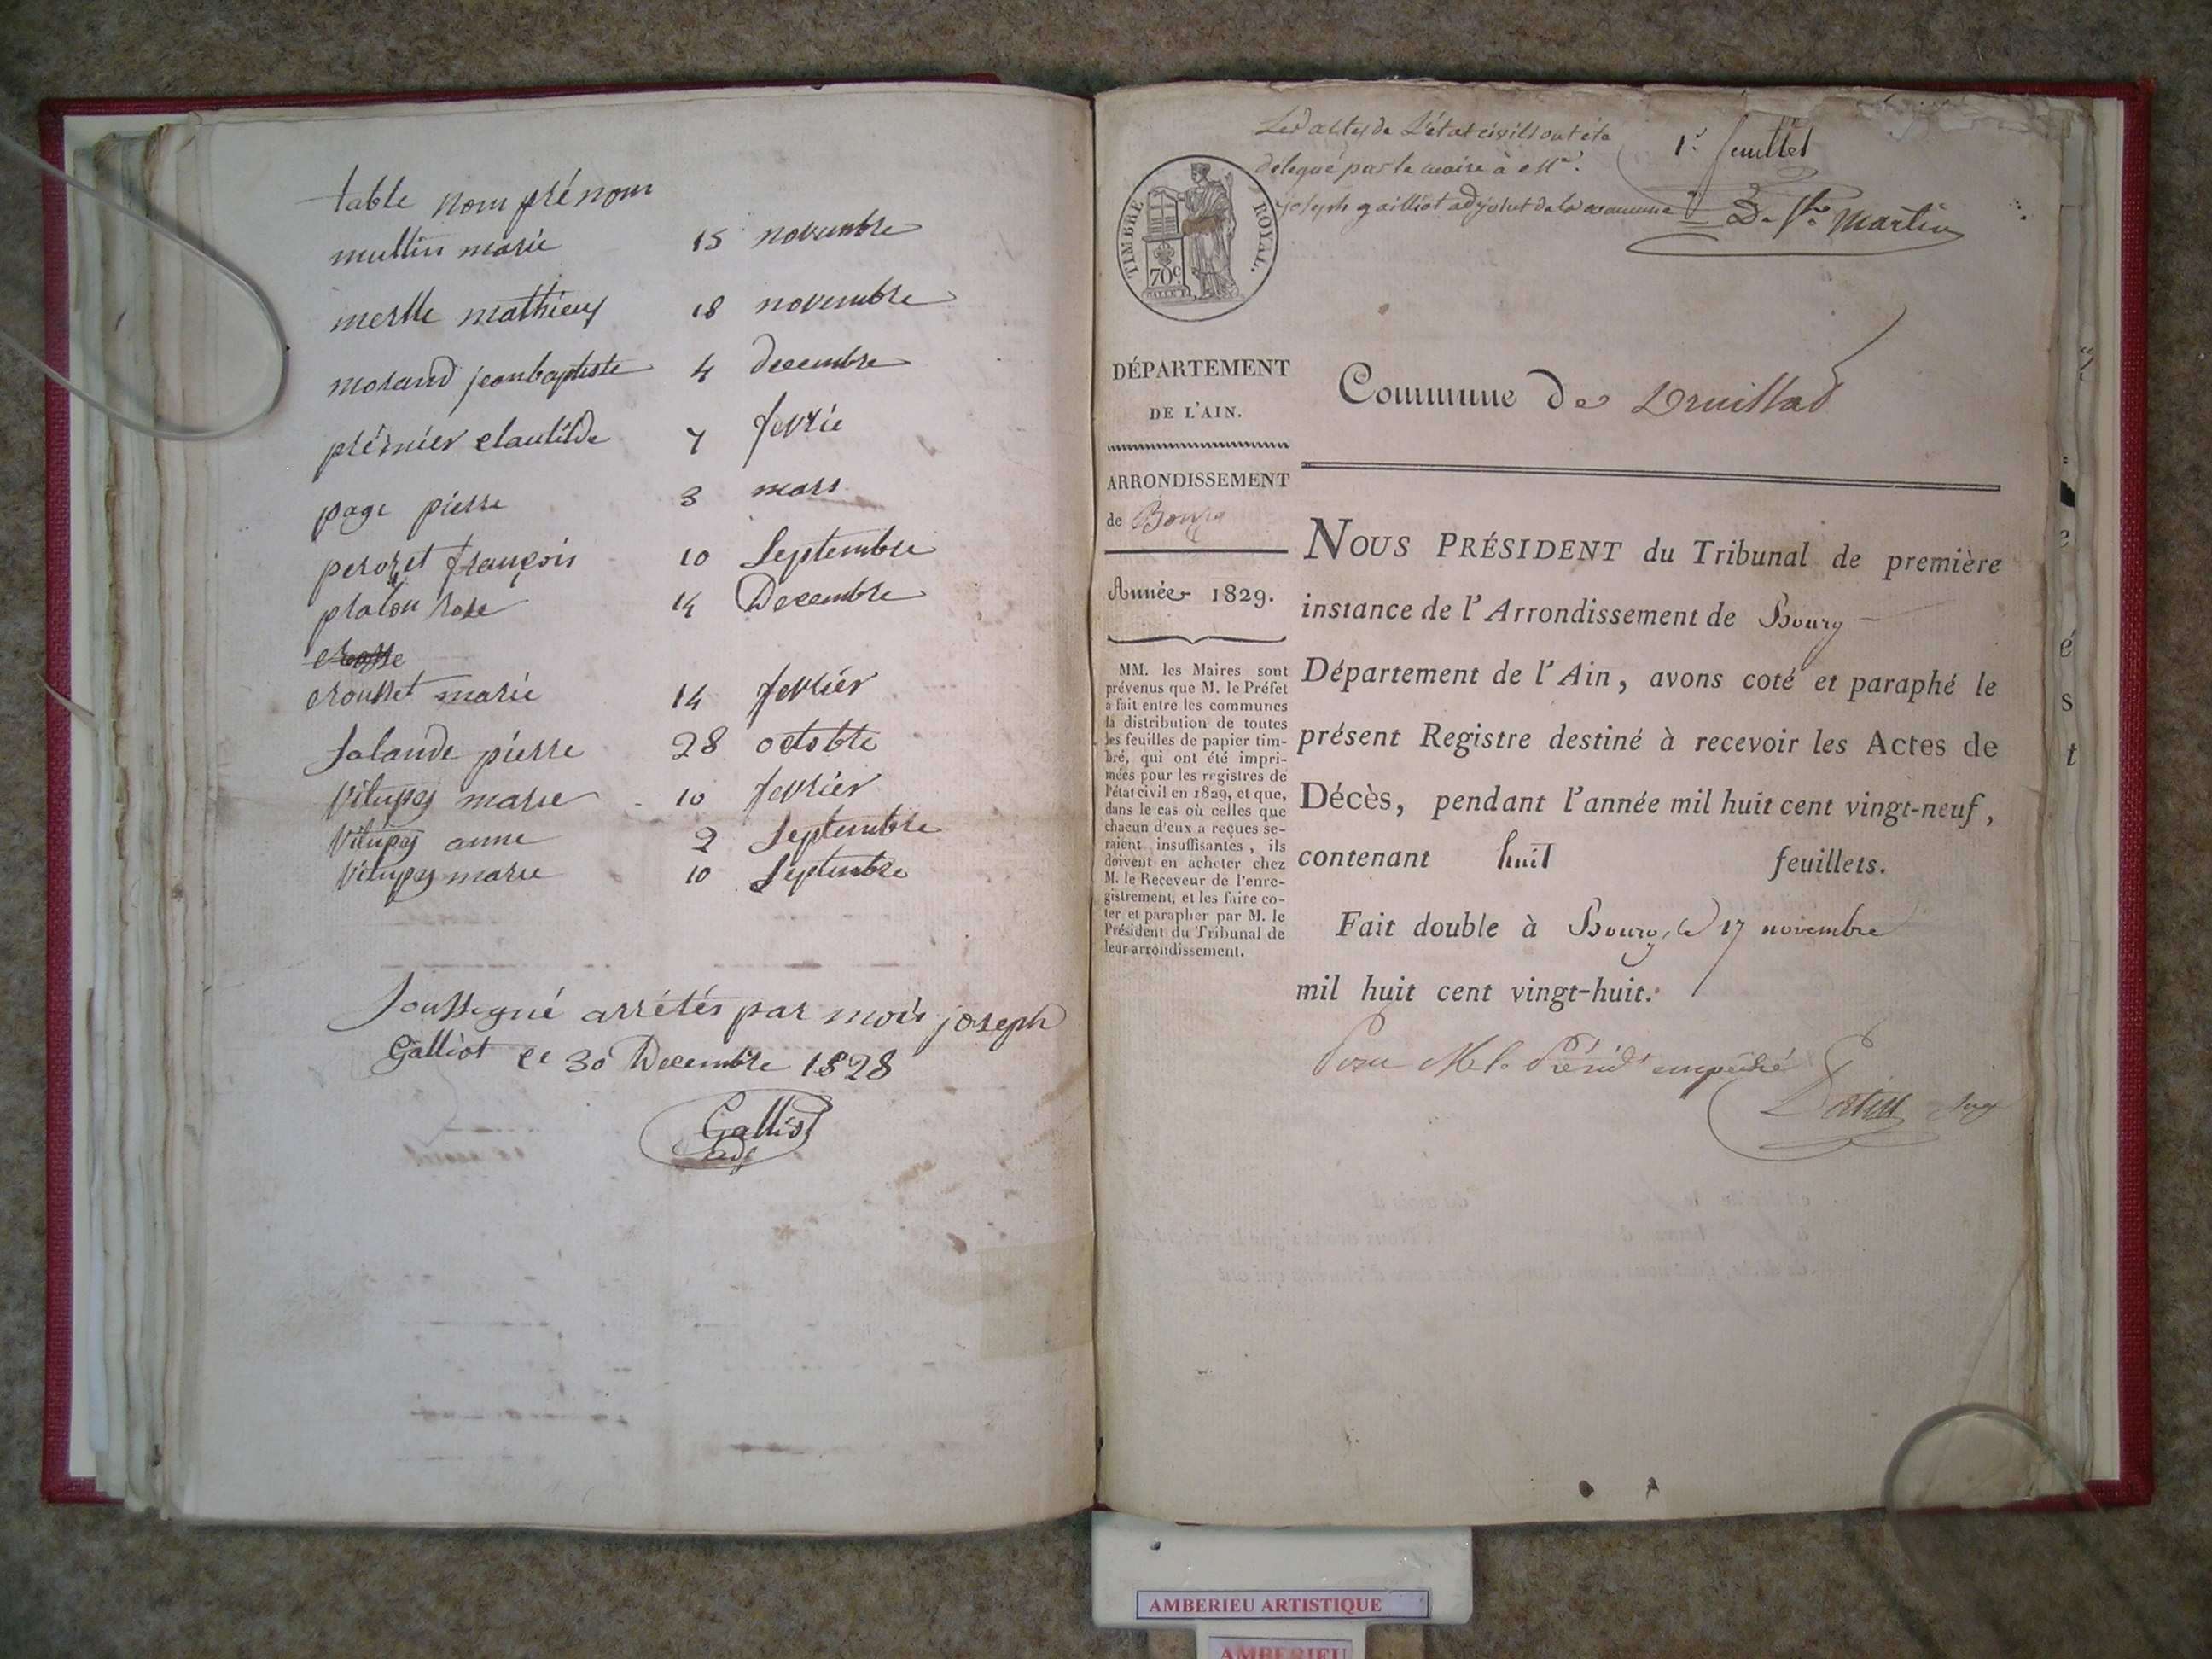 table nom prénom
muttin marie 15 novembre
merlle mathieux 18 novembre
morand jeanbaptiste 4 decembre
prémier clautilde 7 fevrie
page pierre 3 mars
perozet françois 10 Septembre
platon rose 14 Decembre
crousset marie 14 fevrier
Salande pierre 28 octobre
Vitupes marie 10 fevrier
Vitupes anne 2 Septembre
Vitupes marie 10 Septembre
Soussegné arrétés par mois joseph
Galliot ce 30 Decembre 1828
Galliot
adj
Les actes de L'état civill out éte
delegué par le maire à Mr.
joseph gailliot adjoint de la commune
1r feuillet
D. Martin
TIMBRE ROYAL.
70c.
DÉPARTEMENT
DE L'AIN.
ARRONDISSEMENT
de Bourg
Année 1829.
MM. les Maires sont
prévenus que M. le Préfet
a fait entre les communes
la distribution de toutes
les feuilles de papier tim-
bré, qui ont été impri-
mées pour les registres de
l'état civil en 1829, et que,
dans le cas où celles que
chacun d'eux a reçues se-
raient insuffisantes, ils
doivent en acheter chez
M. le Receveur de l'enre-
gistrement, et les faire co-
ter et parapher par M. le
Président du Tribunal de
leur arrondissement.
Commune de Druillad
NOUS PRÉSIDENT du Tribunal de première
instance de l'Arrondissement de Bourg
Département de l'Ain, avons coté et paraphé le
présent Registre destiné à recevoir les Actes de
Décès, pendant l'année mil huit cent vingt-neuf,
contenant huit feuillets.
Fait double à Bourg, le 17 novembre
mil huit cent vingt-huit.
Pour M. le Présidt empêché
AMBERIEU ARTISTIQUE
AMBERIEU